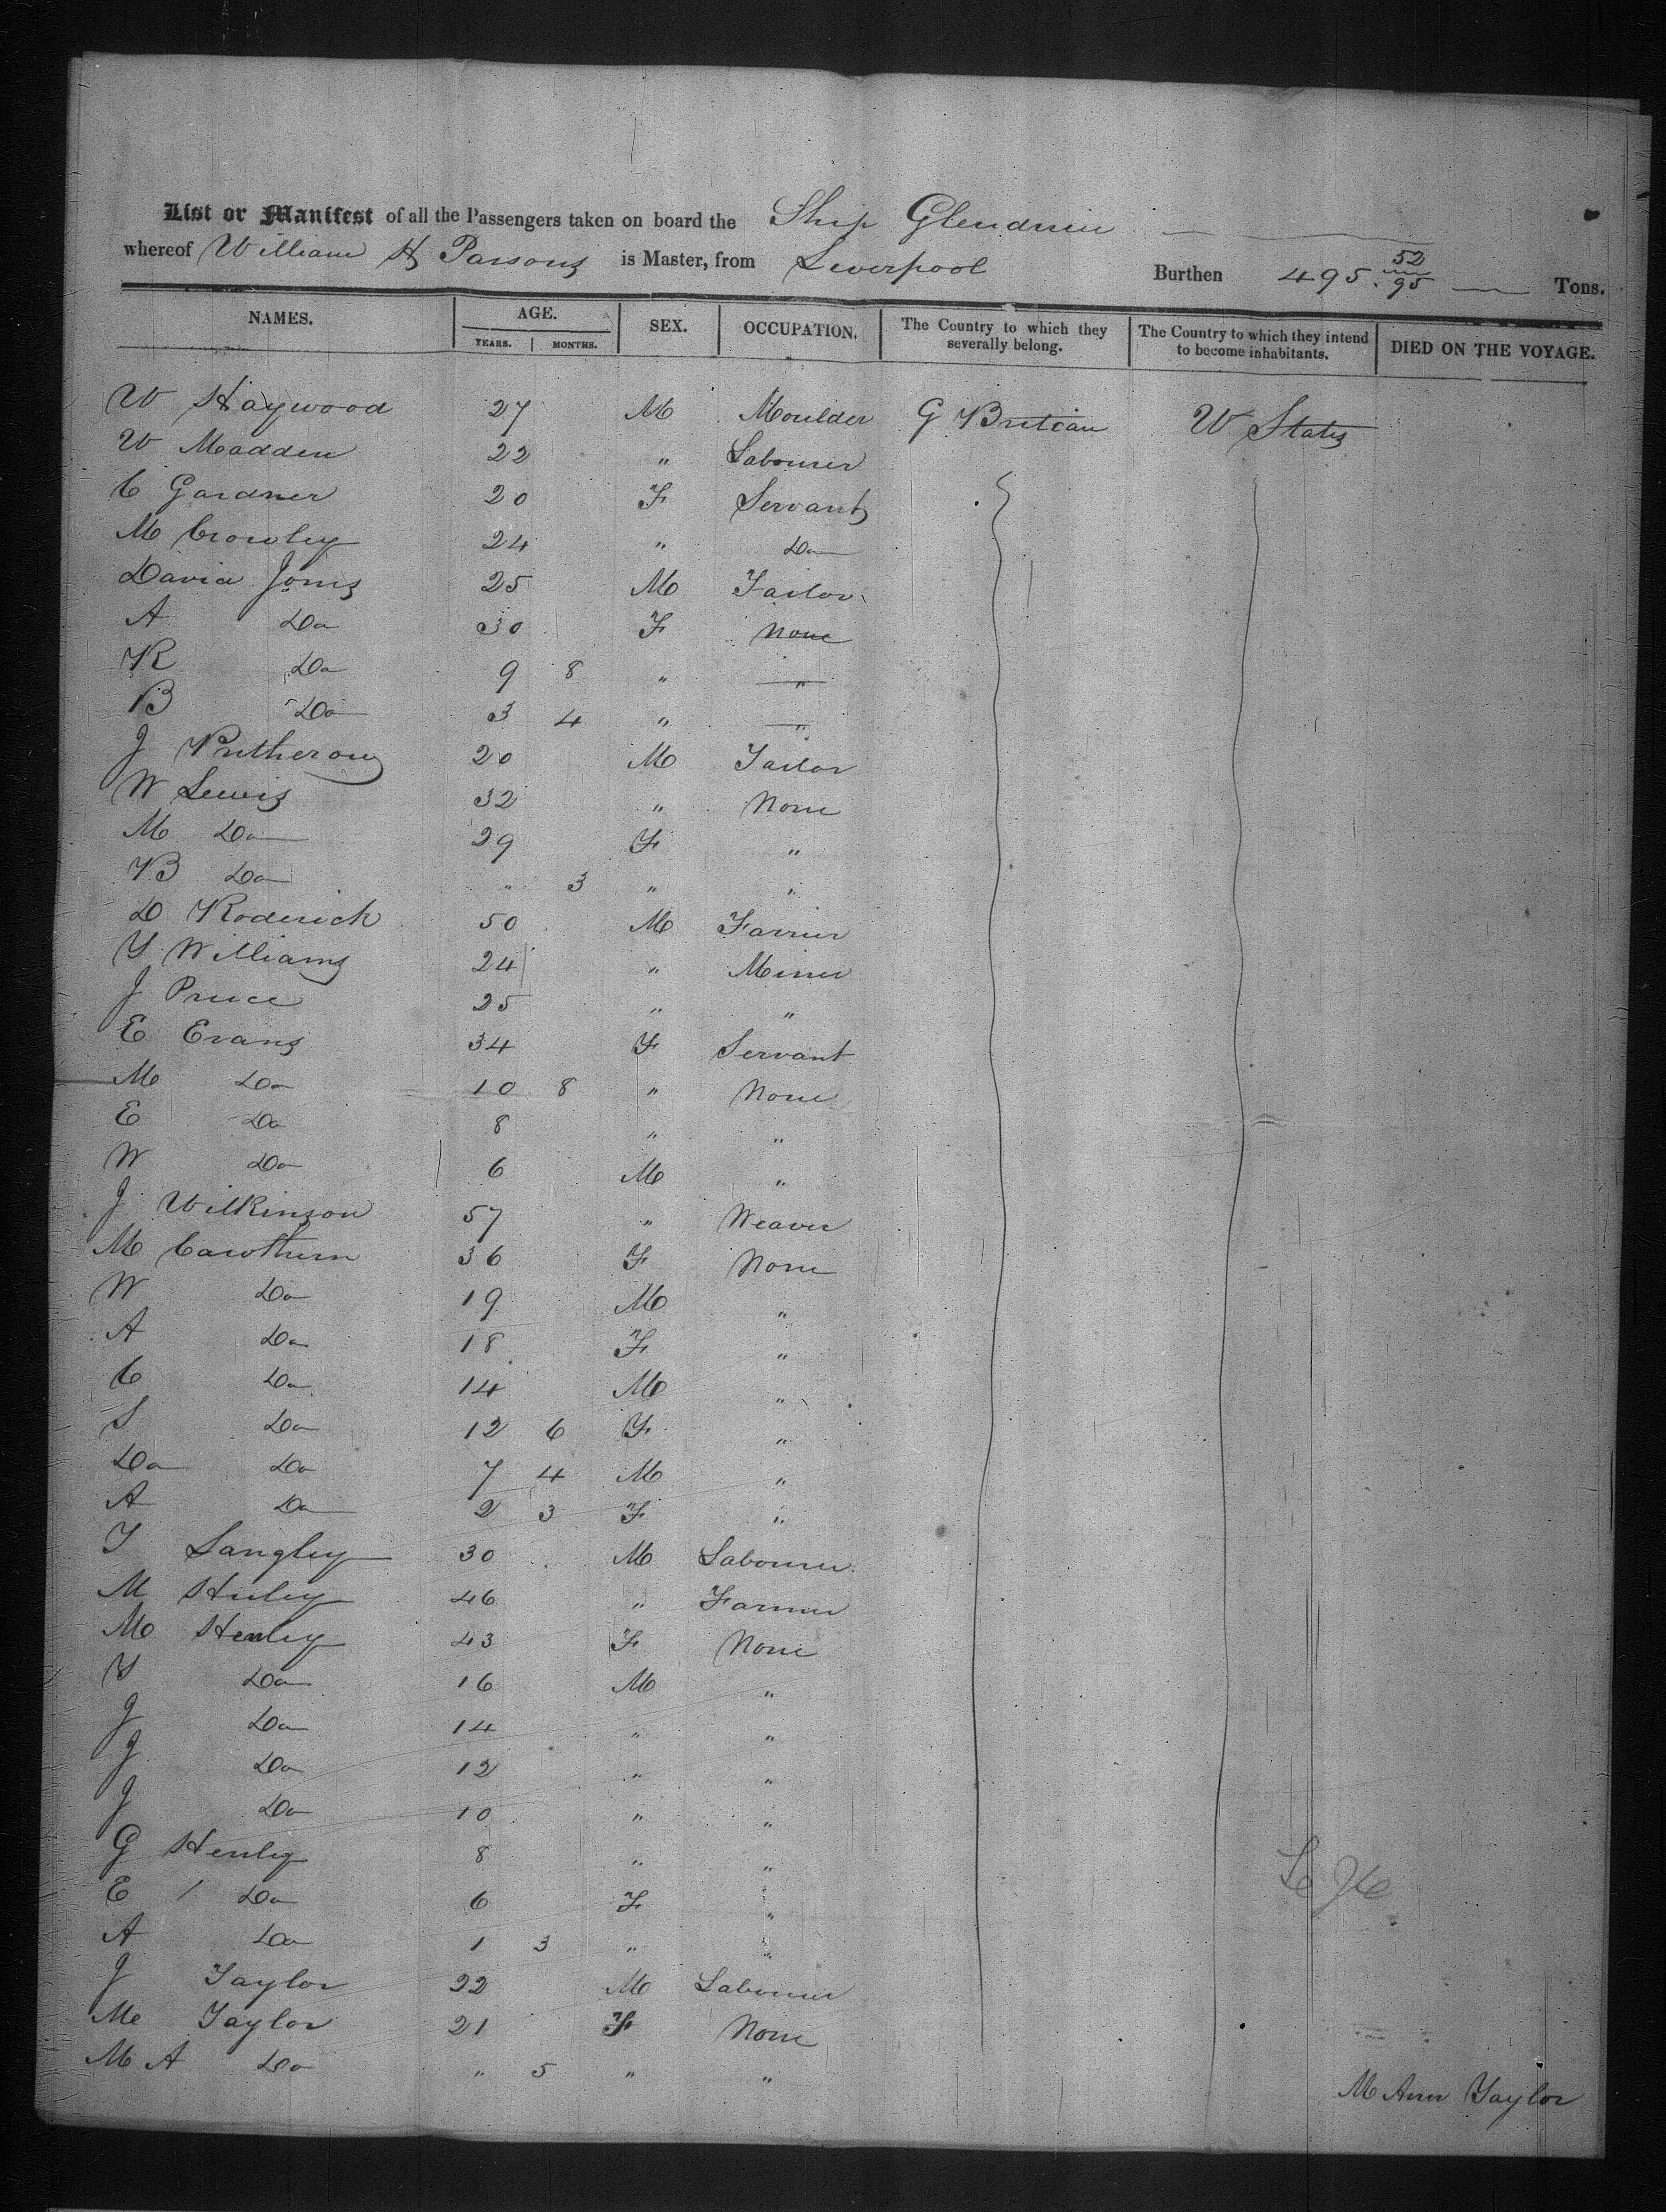 List or Manifest of all the Passengers taken on board the Ship Glendmin
whereof William H Parsons is Master, from Liverpool Burthen 495. 52/95 Tons.
NAMES. AGE. YEARS. MONTHS. SEX. OCCUPATION. The Country to which they severally belong. The Country to which they intend to become inhabitants. DIED ON THE VOYAGE.
W Haywood 27 M Moulder G Britian U States
W Madden 22 " Labourer
C Gardner 20 F Servant
M Crowley 24 " Do
David Jones 25 M Tailor
A Do 30 F None
R Do 9 8 " "
B Do 3 4 " "
J Prutherow 20 M Tailor
W Lewis 32 " None
M Do 29 F "
B Do " 3 " "
D Roderick 50 M Farrier
T Williams 24 " Miner
J Price 25 " "
E Evans 34 F Servant
M Do 10 8 " None
E Do 8 " "
W Do 6 M "
J Wilkinson 57 " Weaver
M Cawthern 36 F None
W Do 19 M "
A Do 18 F "
C Do 14 M "
S Do 12 6 F "
Do Do 7 4 M "
A Do 2 3 F "
T Langley 30 M Labourer
M Henley 46 " Farmer
M Henley 43 F None
T Do 16 M "
J Do 14 " "
J Do 12 " "
J Do 10 " "
G Henley 8 " "
E Do 6 F "
A Do 1 3 " "
J Taylor 22 M Labourer
M Taylor 21 F None
M A Do " 5 " "
M Ann Taylor